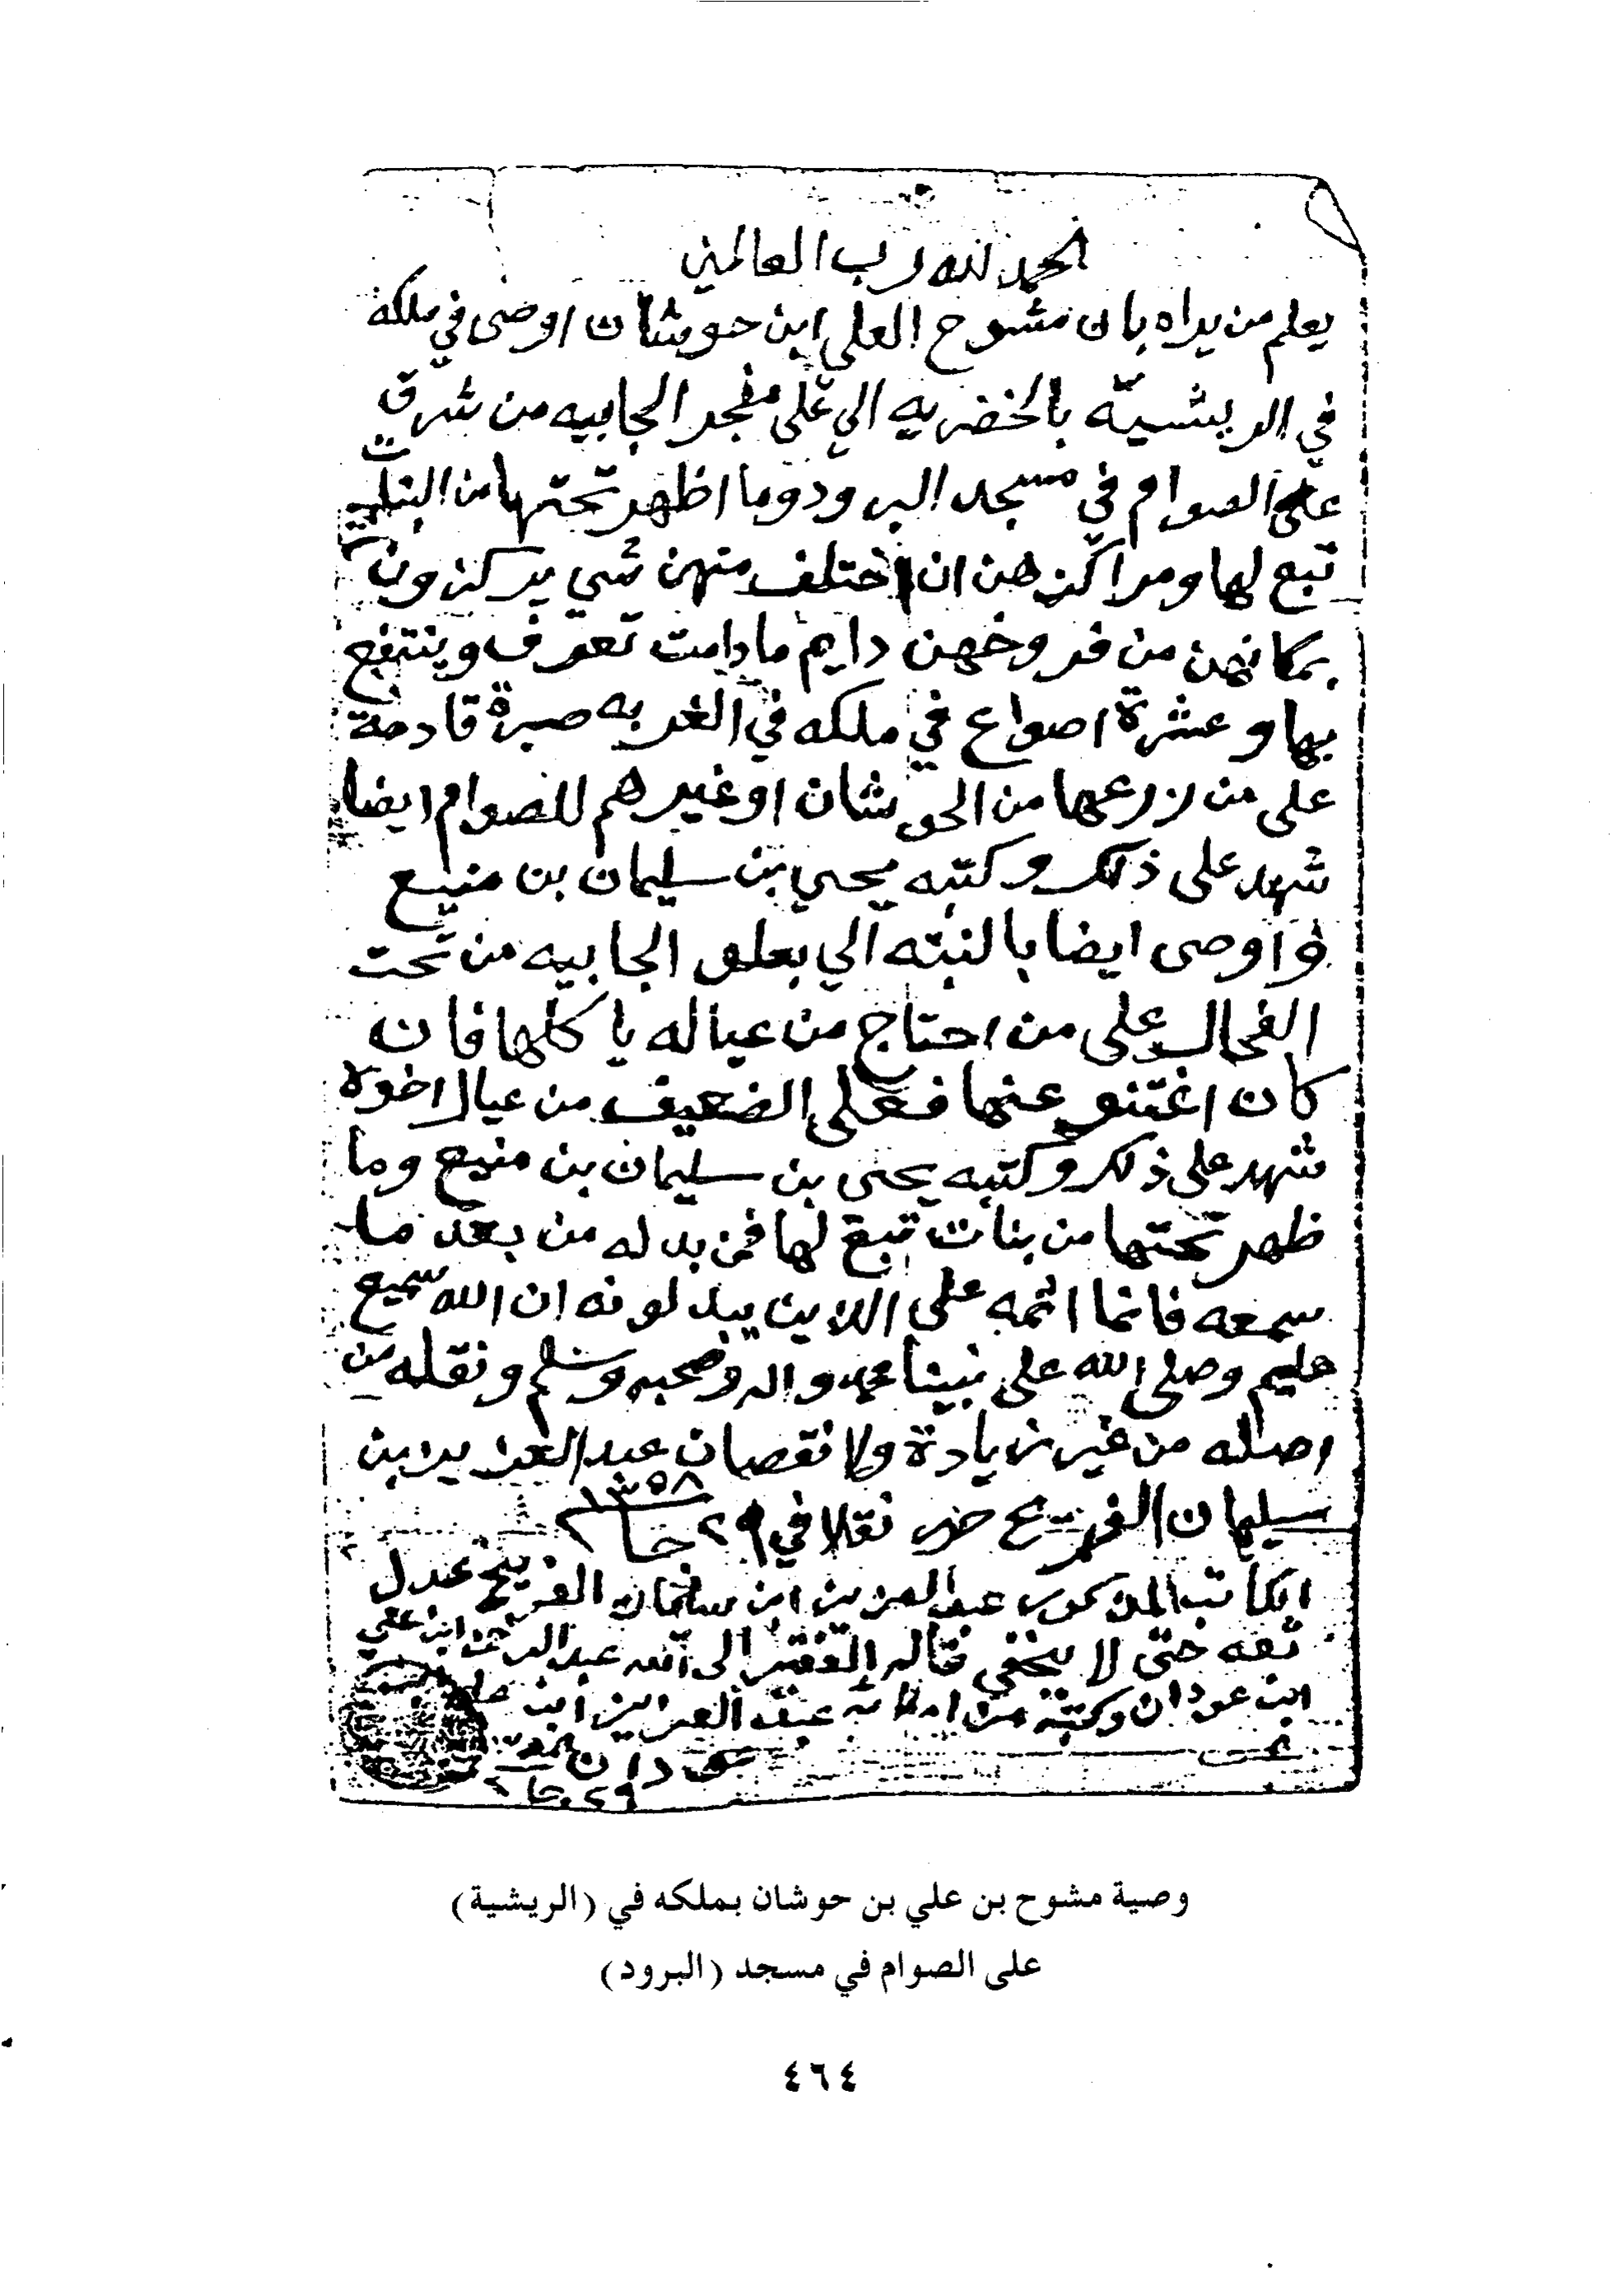 الحمد لله رب العالمين
يعلم من يراه بان مشوح العلي ابن حوشان اوصى في ملكه
في الريشية بالخضريه الي على مفجر الجابيه من شرق
على الصوام في مسجد البرود وما اظهر تحتها من البنات
تبع لها ومراكزهن ان اختلف منهن شي يركزون
بمكانهن من فروخهن دايم مادامت تعرف وينتفع
بها وعشرة اصواع في ملكه في الغربه صبرة قادمة
على من زرعها من الحوشان او غيرهم للصوام ايضا
شهد على ذلك وكتبه يحيى بن سليمان بن منيع
واوصى ايضا بالنبته الي بعلو الجابيه من تحت
الفحال على من احتاج من عياله ياكلها فان
كان اغتنو عنها فعلى الضعيف من عيال اخوة
شهد على ذلك وكتبه يحيى بن سليمان بن منيع وما
ظهر تحتها من بنات تبع لها فمن بدله من بعد ما
سمعه فانما اثمه على الذين يبدلونه ان الله سميع
عليم وصلى الله على نبينا محمد واله وصحبه وسلم ونقله من
اصله من غير زيادة ولا نقصان عبد العزيز بن
سليمان الفريح حرر نقلا في ٢٩ جا ٢ ١٣٥٨
الكاتب المذكور عبد العزيز ابن سليمان الفريح عدل
ثقه حتى لا يخفى قاله الفقير الى الله عبد الرحمن ابن علي
ابن عودان وكتبه من املائه عبد العزيز ابن
عودان
٢٩ جا ٢
وصية مشوح بن علي بن حوشان بملكه في (الريشية)
على الصوام في مسجد (البرود)
٤٦٤